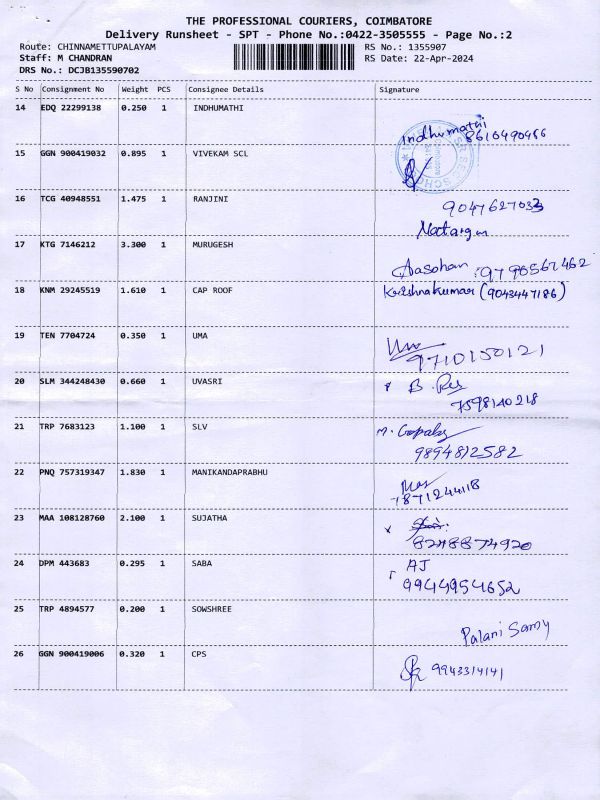 THE PROFESSIONAL COURIERS, COIMBATORE
Delivery Runsheet - SPT - Phone No.:0422-3505555 - Page No.:2
Route: CHINNAMETTUPALAYAM RS No.: 1355907
Staff: M CHANDRAN RS Date: 22-Apr-2024
DRS No.: DCJB135590702
S No Consignment No Weight PCS Consignee Details Signature
14 EDQ 22299138 0.250 1 INDHUMATHI
Indhumathi
8610490466
15 GGN 900419032 0.895 1 VIVEKAM SCL
16 TCG 40948551 1.475 1 RANJINI
9047627033
Natarajan
17 KTG 7146212 3.300 1 MURUGESH
Aasohan :9790567462
18 KNM 29245519 1.610 1 CAP ROOF Krishnakumar (9043447186)
19 TEN 7704724 0.350 1 UMA
9710150121
20 SLM 344248430 0.660 1 UVASRI
7598140218
21 TRP 7683123 1.100 1 SLV M. Gopal
9894812582
22 PNQ 757319347 1.830 1 MANIKANDAPRABHU
7871244118
23 MAA 108128760 2.100 1 SUJATHA
8248874920
24 DPM 443683 0.295 1 SABA AJ
9944954652
25 TRP 4894577 0.200 1 SOWSHREE
Palani Samy
26 GGN 900419006 0.320 1 CPS
9943314141